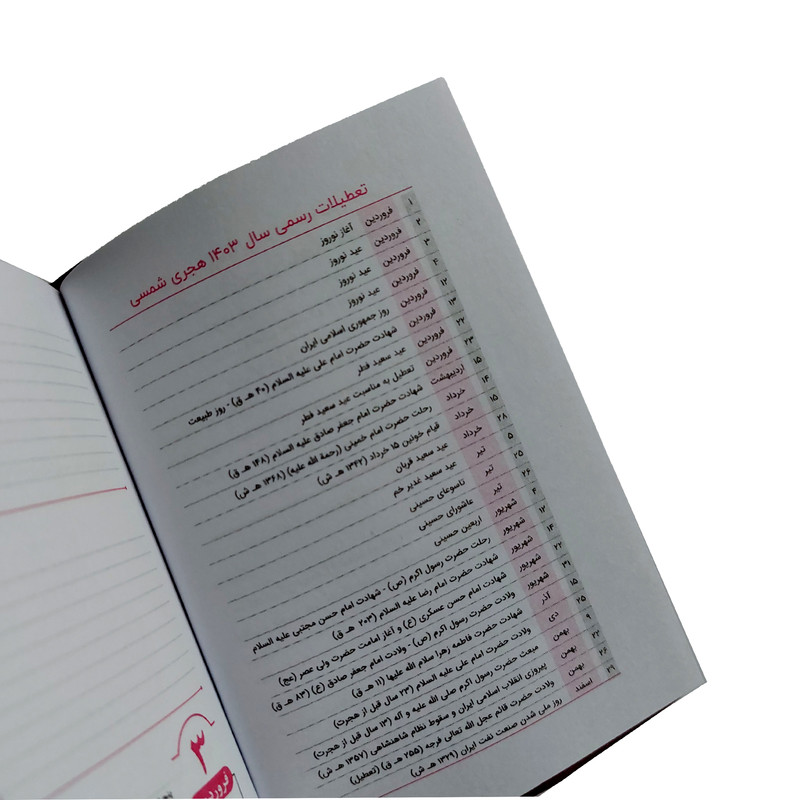 تعطیلات رسمی سال ۱۴۰۳ هجری شمسی
۱ فروردین آغاز نوروز
۲ فروردین عید نوروز
۳ فروردین عید نوروز
۴ فروردین عید نوروز
۱۲ فروردین روز جمهوری اسلامی ایران
۱۳ فروردین شهادت حضرت امام علی علیه السلام (۴۰ هـ ق) - روز طبیعت
۲۲ فروردین عید سعید فطر
۲۳ فروردین تعطیل به مناسبت عید سعید فطر
۱۵ اردیبهشت شهادت حضرت امام جعفر صادق علیه السلام (۱۴۸ هـ ق)
۱۴ خرداد رحلت حضرت امام خمینی (رحمة الله علیه) (۱۳۶۸ هـ ش)
۱۵ خرداد قیام خونین ۱۵ خرداد (۱۳۴۲ هـ ش)
۲۸ خرداد عید سعید قربان
۵ تیر عید سعید غدیر خم
۲۵ تیر تاسوعای حسینی
۲۶ تیر عاشورای حسینی
۴ شهریور اربعین حسینی
۱۲ شهریور رحلت حضرت رسول اکرم (ص) - شهادت امام حسن مجتبی علیه السلام
۱۴ شهریور شهادت حضرت امام رضا علیه السلام (۲۰۳ هـ ق)
۲۲ شهریور شهادت امام حسن عسکری (ع) و آغاز امامت حضرت ولی عصر (عج)
۳۱ شهریور ولادت حضرت رسول اکرم (ص) - ولادت امام جعفر صادق (ع) (۸۳ هـ ق)
۱۵ آذر شهادت حضرت فاطمه زهرا سلام الله علیها (۱۱ هـ ق)
۲۵ دی ولادت حضرت امام علی علیه السلام (۲۳ سال قبل از هجرت)
۹ بهمن مبعث حضرت رسول اکرم صلی الله علیه و آله (۱۳ سال قبل از هجرت)
۲۲ بهمن پیروزی انقلاب اسلامی ایران و سقوط نظام شاهنشاهی (۱۳۵۷ هـ ش)
۲۶ بهمن ولادت حضرت قائم عجل الله تعالی فرجه (۲۵۵ هـ ق) (تعطیل)
۲۹ اسفند روز ملی شدن صنعت نفت ایران (۱۳۲۹ هـ ش)
۳